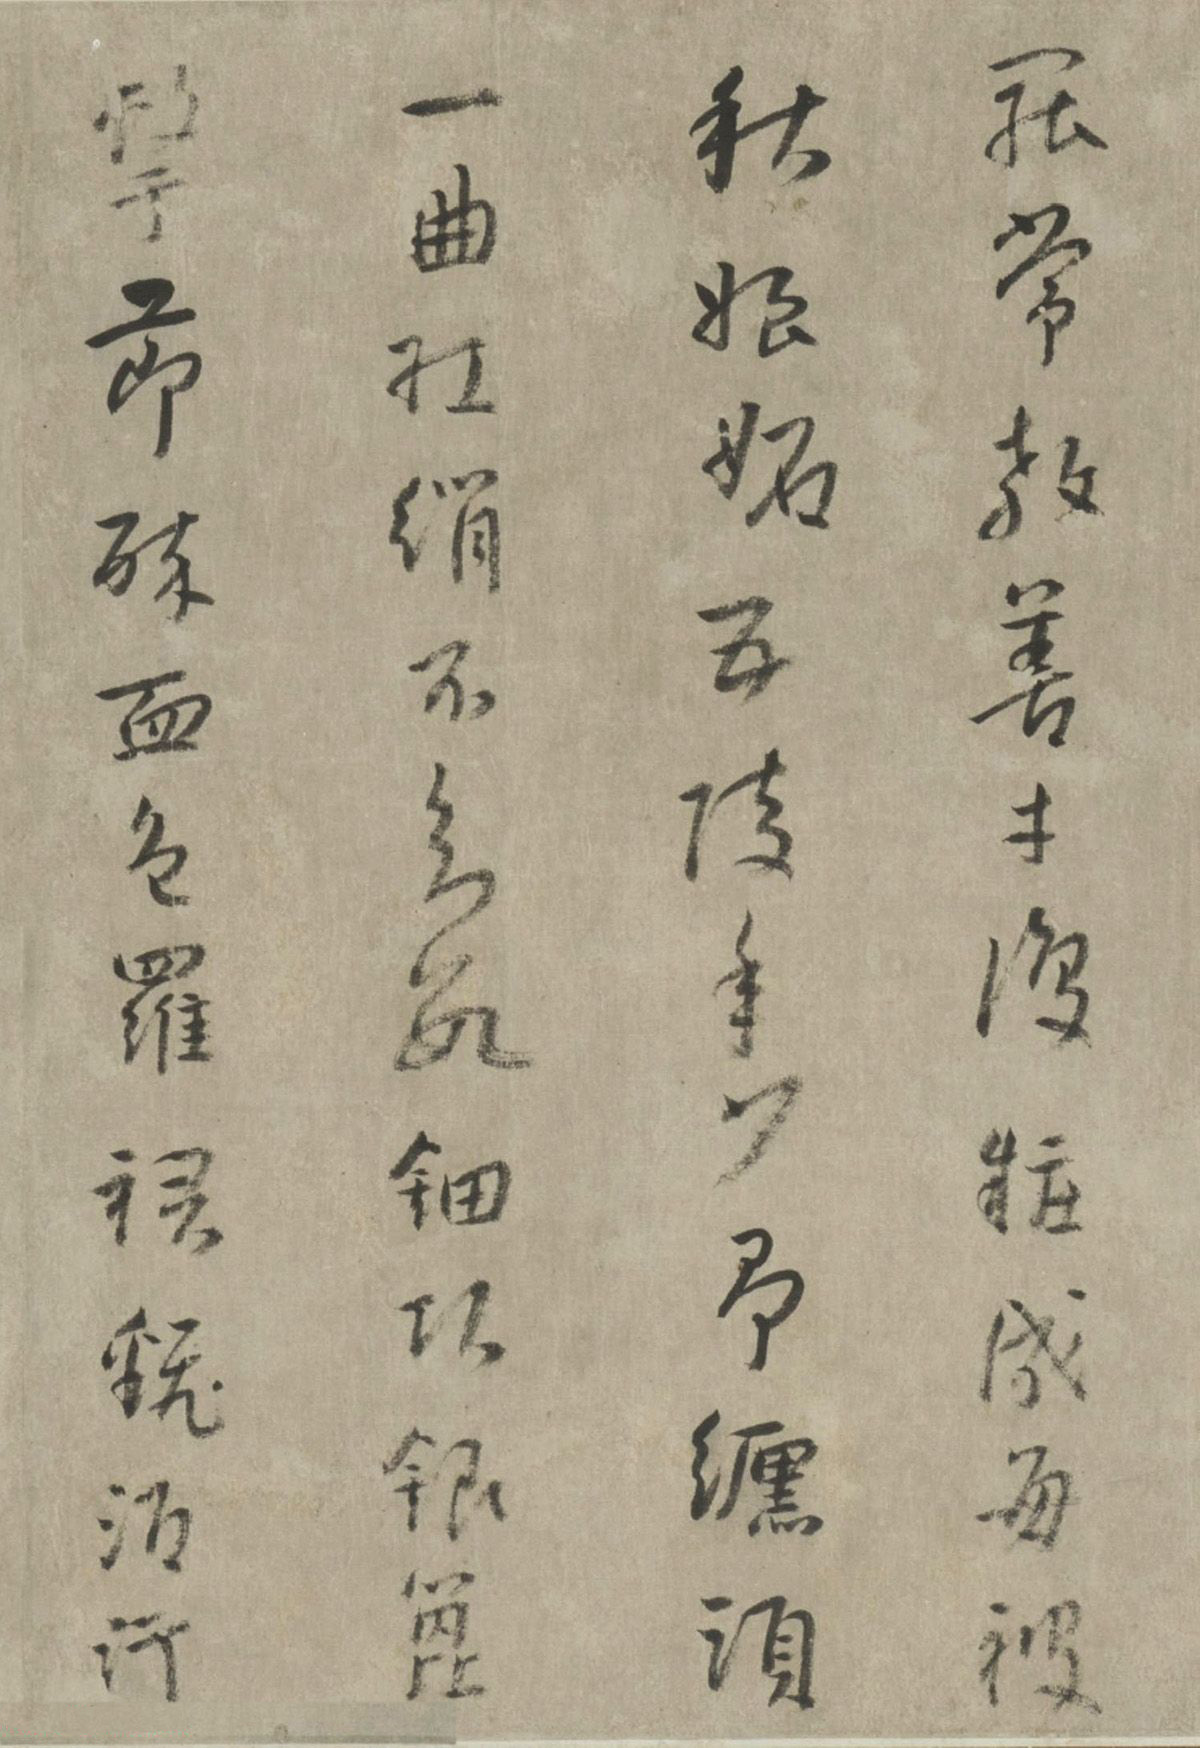 罷常教善才復粧成每被
秋娘妬五陵年少爭纏頭
一曲紅綃不知數鈿頭銀篦
擊節碎血色羅裙翻酒汙